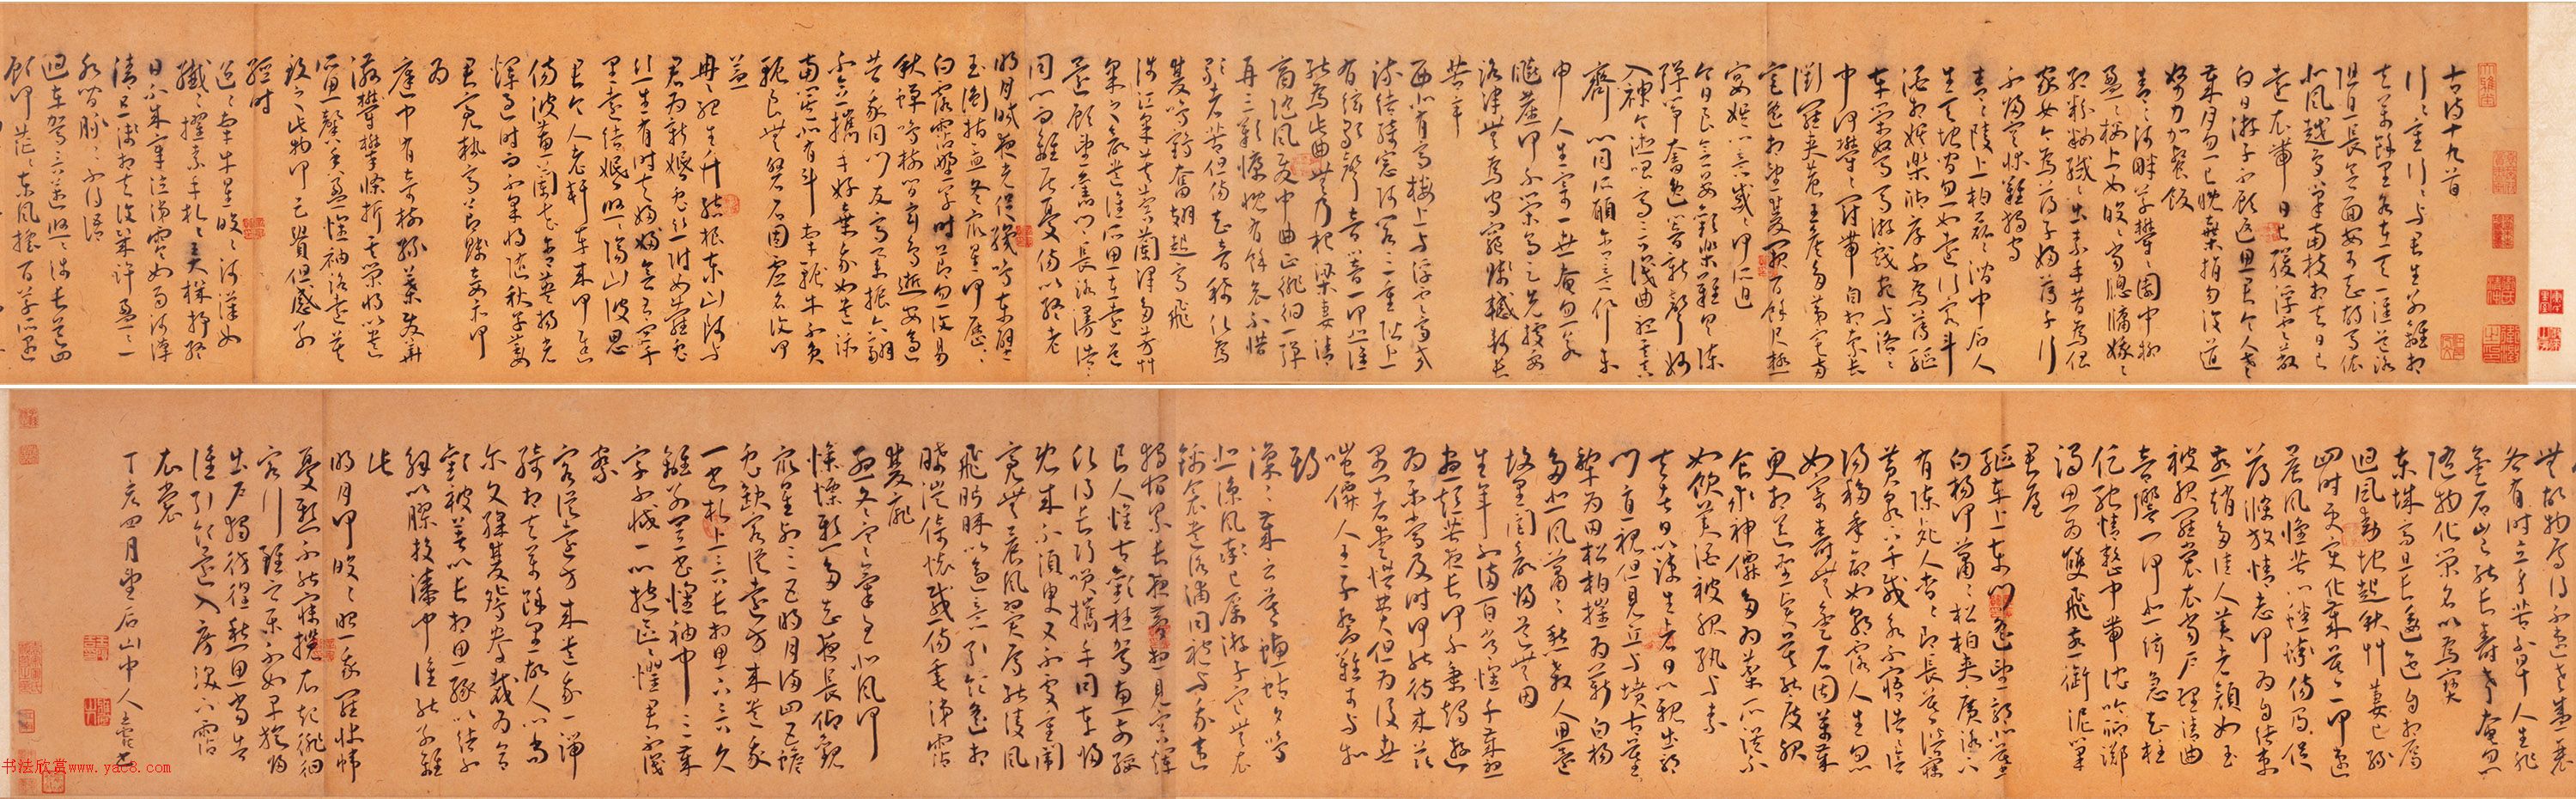 古詩十九首
行行重行行與君生別離相
去萬餘里各在天一涯道路
阻且長會面安可知胡馬依
北風越鳥巢南枝相去日已
遠衣帶日已緩浮雲蔽
白日遊子不顧返思君令人老
歲月忽已晚棄捐勿復道
努力加餐飯
青青河畔草鬱鬱園中柳
盈盈樓上女皎皎當牕牖娥娥
紅粉粧纖纖出素手昔為倡
家女今為蕩子婦蕩子行
不歸空牀難獨守
青青陵上柏磊磊澗中石人
生天地間忽如遠行客斗
酒相娛樂聊厚不為薄驅
車策駑馬遊戲宛與洛洛
中何鬱鬱冠帶自相索長
衢羅夾巷王侯多第宅兩
宮遙相望雙闕百餘尺極
宴娛心意戚戚何所迫
今日良宴會歡樂難具陳
彈箏奮逸響新聲妙
入神令德唱高言識曲聽其真
齊心同所願含意俱未
申人生寄一世奄忽若
飆塵何不策高足先據要
路津無為守窮賤轗軻長
苦辛
西北有高樓上與浮雲齊交
疏結綺窗阿閣三重階上
有絃歌聲音響一何悲誰
能為此曲無乃杞梁妻清
商隨風發中曲正徘徊一彈
再三歎慷慨有餘哀不惜
歌者苦但傷知音稀願為
雙鳴鶴奮翅起高飛
涉江采芙蓉蘭澤多芳草
采之欲遺誰所思在遠道
還顧望舊鄉長路漫浩浩
同心而離居憂傷以終老
明月皎夜光促織鳴東壁
玉衡指孟冬眾星何歷歷
白露霑野草時節忽復易
秋蟬鳴樹間玄鳥逝安適
昔我同門友高舉振六翮
不念攜手好棄我如遺跡
南箕北有斗牽牛不負
軛良無磐石固虛名復何
益
冉冉孤生竹結根泰山阿與
君為新婚兔絲附女蘿兔
絲生有時夫婦會有宜千
里遠結婚悠悠隔山陂思
君令人老軒車來何遲
傷彼蕙蘭花含英揚光
輝過時而不采將隨秋草萎
君亮執高節賤妾亦何
為
庭中有奇樹綠葉發華
滋攀條折其榮將以遺
所思馨香盈懷袖路遠莫
致之此物何足貴但感別
經時
迢迢牽牛星皎皎河漢女
纖纖擢素手札札弄機杼終
日不成章泣涕零如雨河漢
清且淺相去復幾許盈盈一
水間脈脈不得語
迴車駕言邁悠悠涉長道四
顧何茫茫東風搖百草所遇
無故物焉得不速老盛衰
各有時立身苦不早人生非
金石豈能長壽考奄忽
隨物化榮名以為寶
東城高且長逶迤自相屬
迴風動地起秋草萋已綠
四時更變化歲暮一何速
晨風懷苦心蟋蟀傷局促
蕩滌放情志何為自結束
燕趙多佳人美者顏如玉
被服羅裳衣當戶理清曲
音響一何悲絃急知柱
促馳情整中帶沈吟聊躑
躅思為雙飛燕銜泥巢
君屋
驅車上東門遙望郭北墓
白楊何蕭蕭松柏夾廣路下
有陳死人杳杳即長暮潛寐
黃泉下千載永不寤浩浩陰
陽移年命如朝露人生忽
如寄壽無金石固萬歲
更相送聖賢莫能度服
食求神僊多為藥所誤不
如飲美酒被服紈與素
去者日以疎生者日以親出郭
門直視但見丘與墳古墓
犁為田松柏摧為薪白楊
多悲風蕭蕭愁殺人思還
故里閭欲歸道無因
生年不滿百常懷千歲憂
晝短苦夜長何不秉燭遊
為樂當及時何能待來茲
愚者愛惜費但為後世
嗤僊人王子喬難可與等
期
凜凜歲云暮螻蛄夕鳴
悲涼風率已厲遊子寒無衣
錦衾遺洛浦同袍與我違
獨宿累長夜夢想見容輝
良人惟古歡枉駕惠前綏
願得長巧笑攜手同車歸
既來不須臾又不處重闈
亮無晨風翼焉能凌風
飛眄睞以適意引領遙相
睎徙倚懷感傷垂涕霑
雙扉
孟冬寒氣至北風何
慘慄愁多知夜長仰觀
眾星列三五明月滿四五蟾
兔缺客從遠方來遺我
一書札上言長相思下言久
離別置書懷袖中三歲
字不滅一心抱區區懼君不識
察
客從遠方來遺我一端
綺相去萬餘里故人心尚
爾文綵雙鴛鴦裁為合
歡被著以長相思緣以結不
解以膠投漆中誰能別離
此
明月何皎皎照我羅牀幃
憂愁不能寐攬衣起徘徊
客行雖云樂不如早旋歸
出戶獨彷徨愁思當告
誰引領還入房淚下霑
衣裳
丁亥四月望後山中人
书法欣赏www.yac8.com